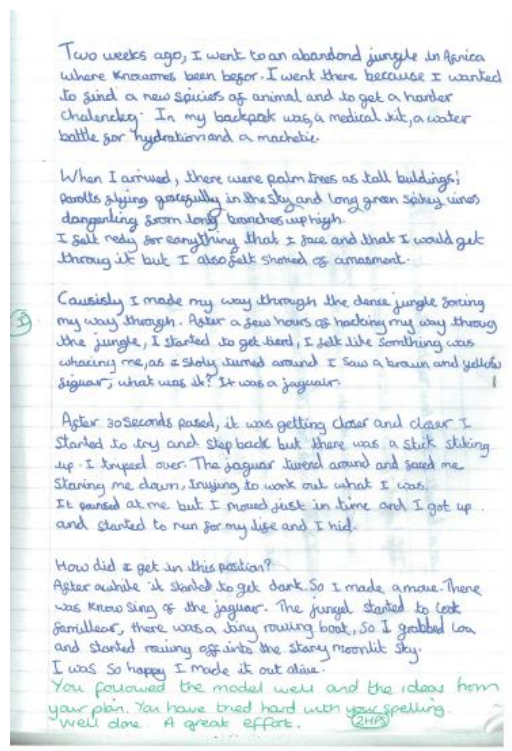 Two weeks ago, I went to an abandond jungle in Africa
where knowones been befor. I went there because I wanted
to find a new spicies of animal and to get a harder
chalencleg. In my backpack was, a medical kit, a water
battle for hydration and a machetie.
When I arrived, there were palm trees as tall buldings;
parotts flying gracefully in the sky and long green spikey vines
dangerling from long branches up high.
I felt redy for eanything that I face and that I would get
throug it but I also felt shoned of amasment.
Causisly I made my way through the dense jungle forcing
I
my way through. After a few hours of hacking my way throug
the jungle, I started to get tierd, I felt like somthing was
whacing me, as I sloly turned around I saw a brown and yellow
figuar, what was it? It was a jaguair.
After 30 seconds pased, it was getting closer and closer I
started to try and step back but there was a stick stiking
up. I tryped over. The jaguar twend around and faced me
staring me down, truying to work out what I was.
It paunsed at me but I moved just in time and I got up
and started to run for my life and I hid.
How did I get in this position?
After awhile it started to get dark. So I made a move. There
was know sing of the jaguar. The jungel started to look
famillear, there was a tiny rowing boat, so I grabbed
and started rowing off into the stary moonlit sky.
I was so happy I made it out alive.
You followed the model well and the ideas from
your plan. You have tried hard with your spelling.
Well done. A great effort. 2HPs